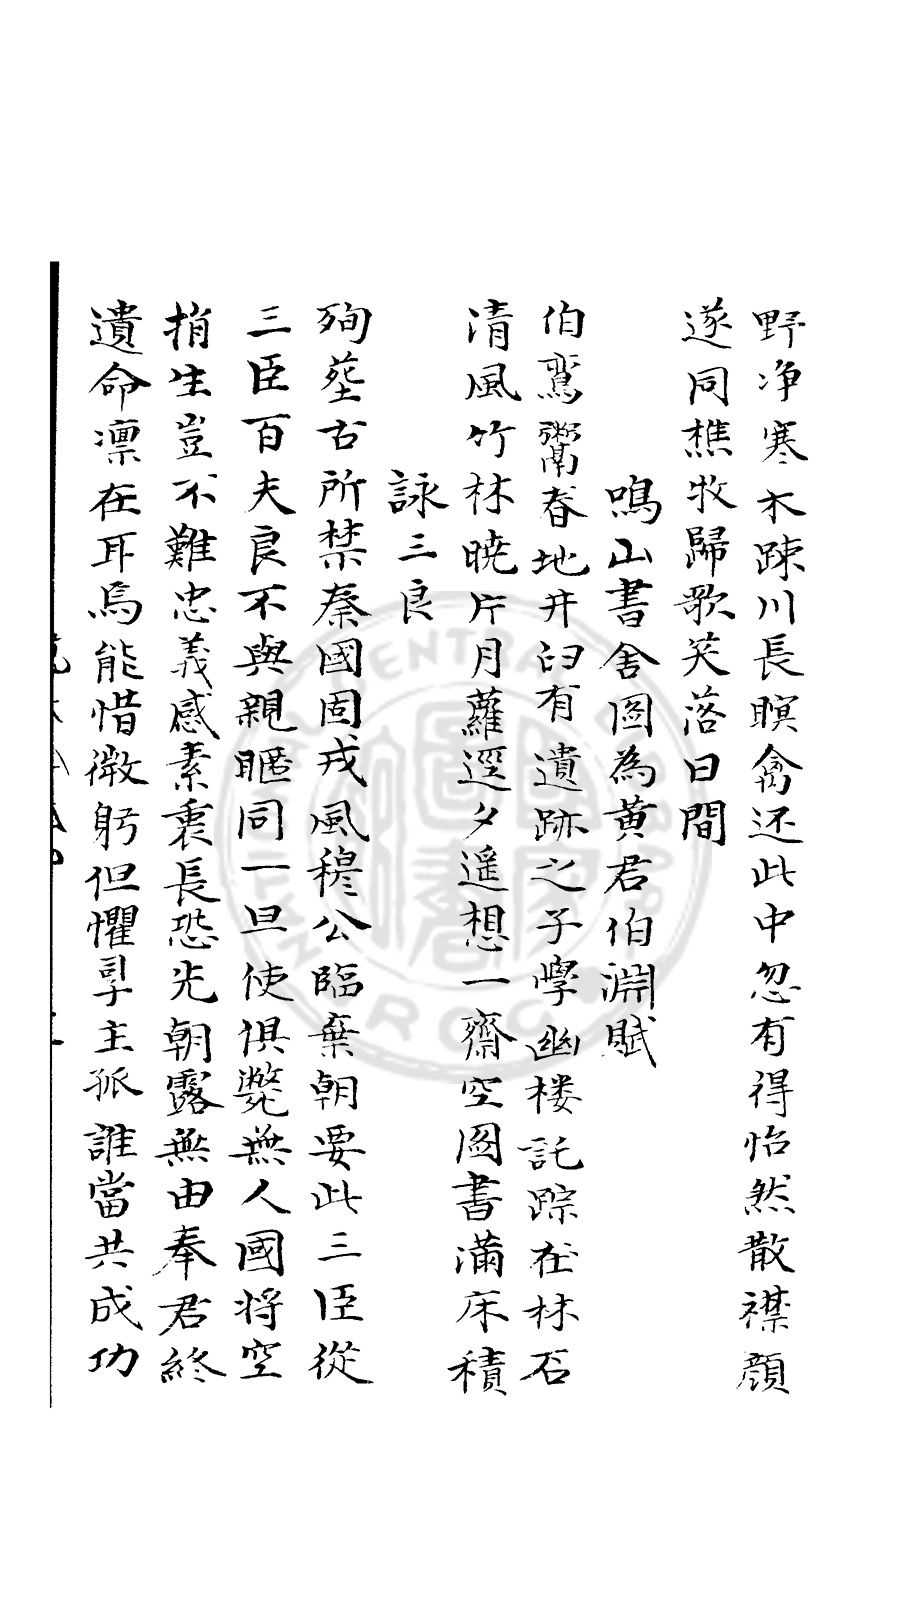 野净寒木踈川長暝禽还此中忽有得怡然散襟顔
遂同樵牧歸歌笑落日間
鳴山書舍图為黄君伯淵賦
伯鸞鬻舂地井臼有遺跡之子學幽楼託踪在林石
清風竹林暁片月蘿逕夕遥想一齋空图書滿床積
詠三良
殉塟古所禁秦國固戎風穆公臨棄朝要此三臣從
三臣百夫良不與親暱同一旦使俱斃無人國将空
捐生豈不難忠義感素衷長恐先朝露無由奉君終
遺命凛在耳焉能惜微躬但懼孠主孤誰當共成功